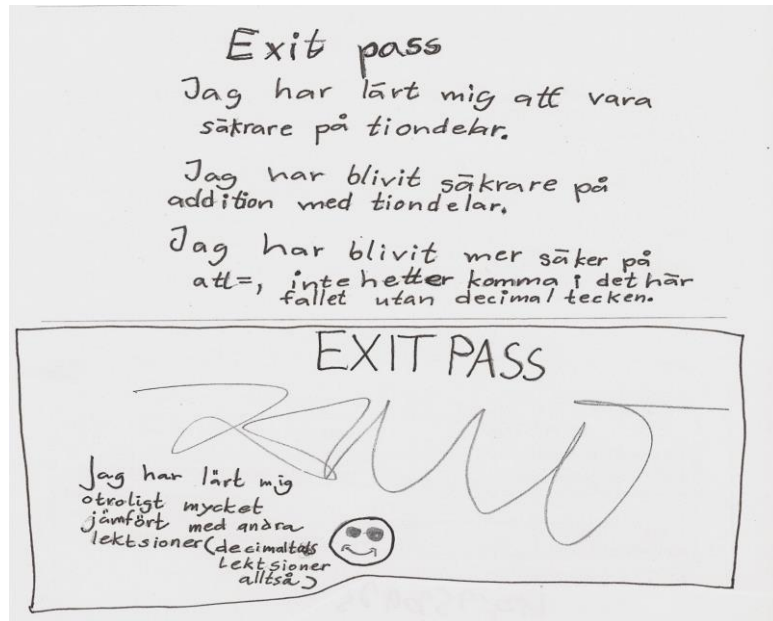 Exit pass
Jag har lärt mig att vara
säkrare på tiondelar.
Jag har blivit säkrare på
addition med tiondelar.
Jag har blivit mer säker på
att =, inte hetter komma i det här
fallet utan decimal tecken.
EXIT PASS
Jag har lärt mig
otroligt mycket
jämfört med andra
lektsioner (decimaltals
Lektsioner
alltså)